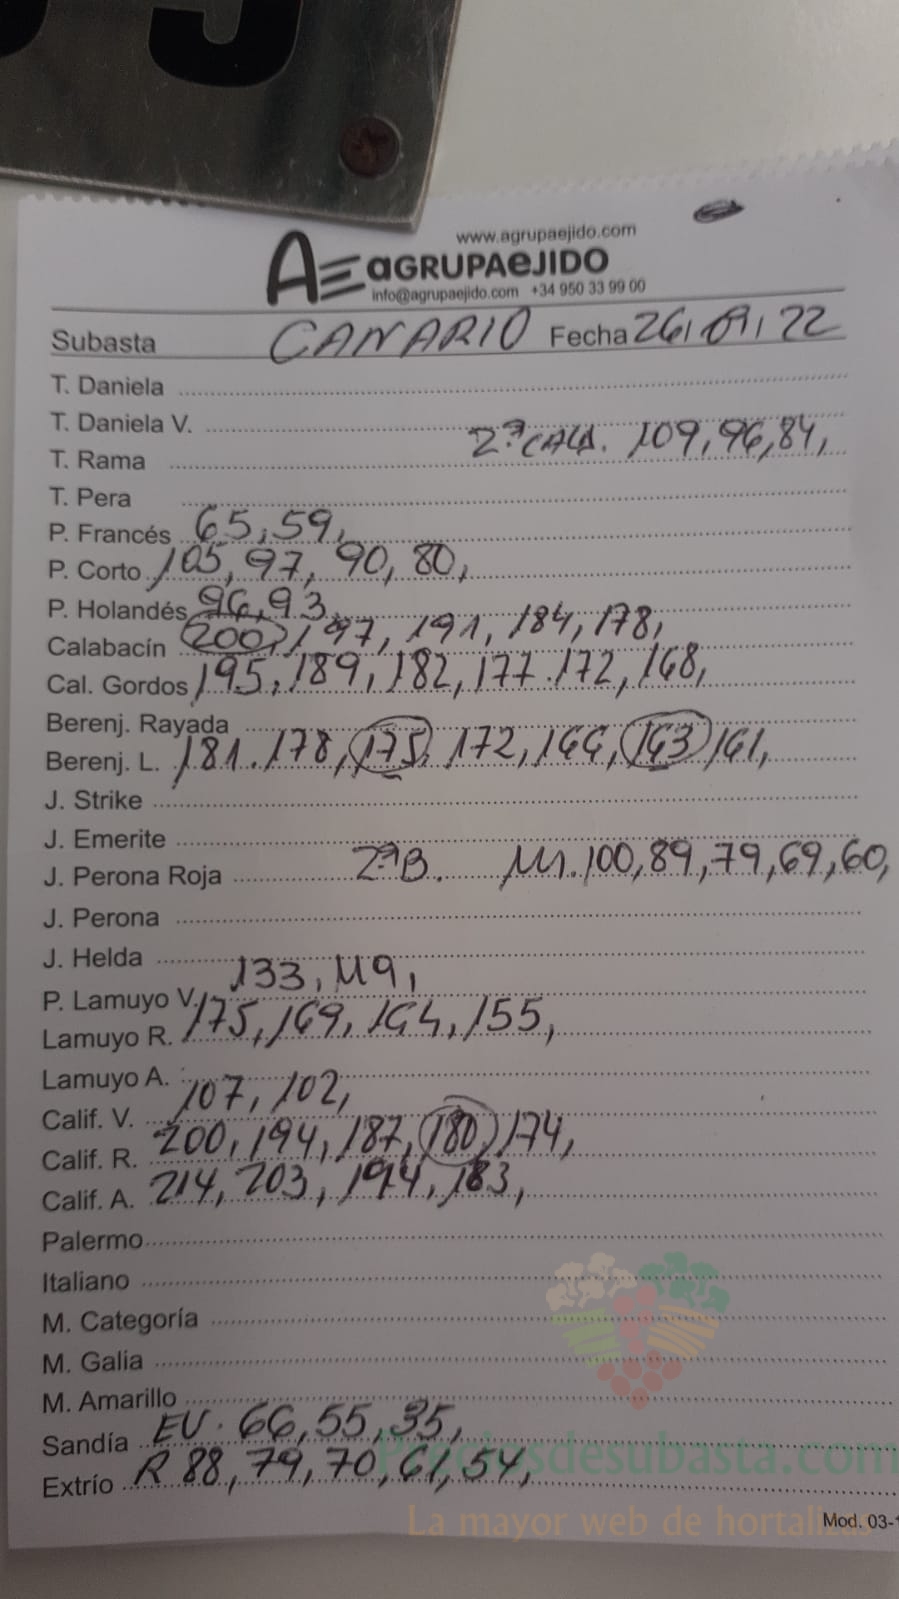 www.agrupaejido.com
AE aGRUPAeJIDO
info@agrupaejido.com +34 950 33 99 00
Subasta CANARIO Fecha 26/01/22
T. Daniela
T. Daniela V.
T. Rama 2ª CALA. 109, 96, 84,
T. Pera
P. Francés 65, 59,
P. Corto 105, 97, 90, 80,
P. Holandés 96, 93,
Calabacín 200, 197, 191, 184, 178,
Cal. Gordos 195, 189, 182, 177. 172, 168,
Berenj. Rayada
Berenj. L. 181. 178, 175, 172, 166, 163 161,
J. Strike
J. Emerite
J. Perona Roja 2ª B. 111. 100, 89, 79, 69, 60,
J. Perona
J. Helda
P. Lamuyo V. 133, 119,
Lamuyo R. 175, 169, 164, 155,
Lamuyo A.
Calif. V. 107, 102,
Calif. R. 200, 194, 187, 180, 174,
Calif. A. 214, 203, 194, 183,
Palermo
Italiano
M. Categoría
M. Galia
M. Amarillo
Sandía EU. 66, 55, 35,
Extrío R 88, 79, 70, 61, 54,
Preciosdesubasta.com
La mayor web de hortalizas
Mod. 03-